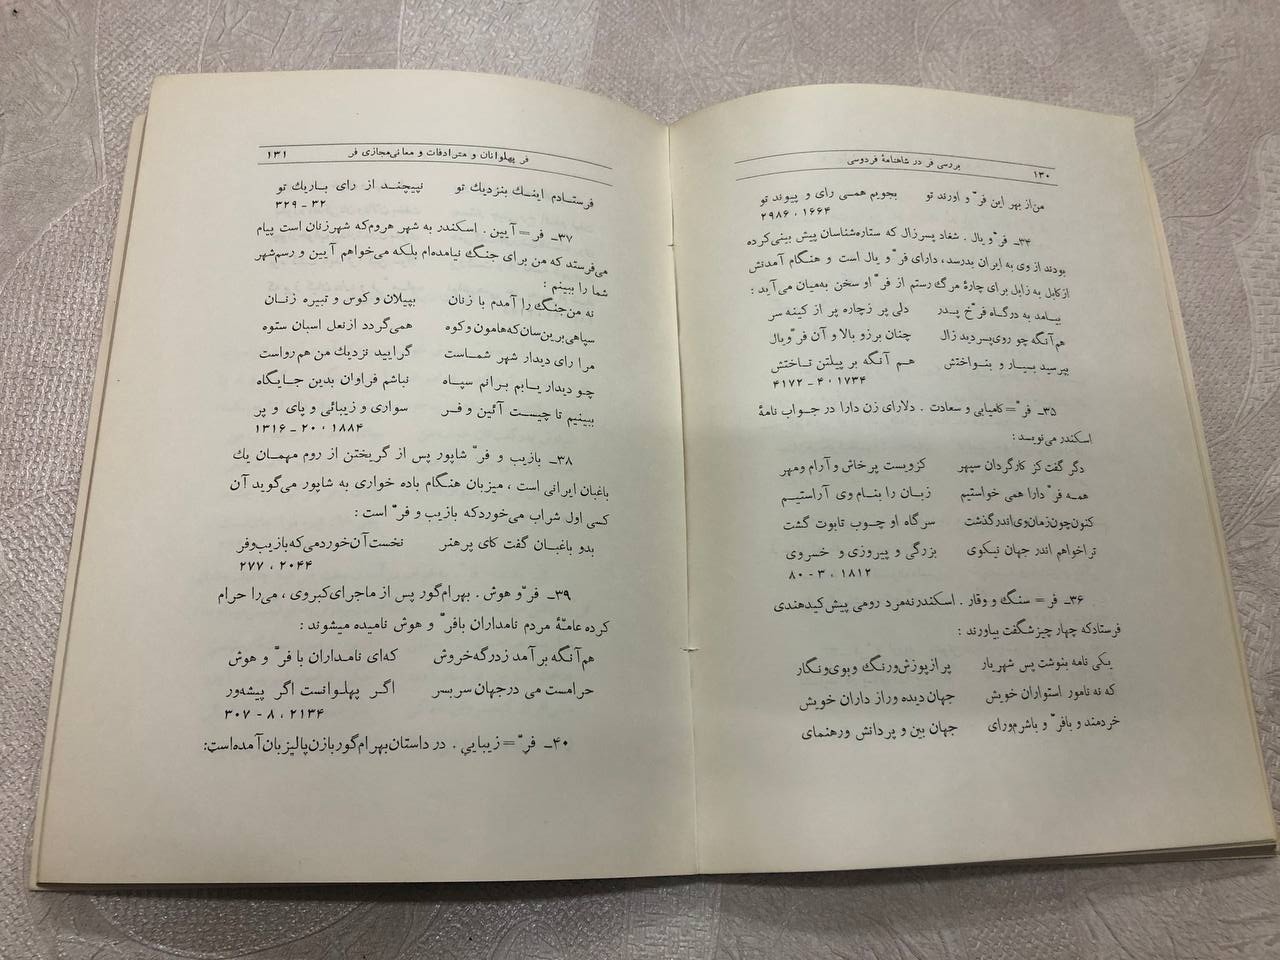 ۱۳۰ بررسی فر در شاهنامهٔ فردوسی
من از بهر این فرّ و اورند تو بجویم همی رای و پیوند تو
۱۶۶۴ ، ۲۹۸۶
۳۴ـ فرّ و یال . شغاد پسر زال که ستاره‌شناسان پیش بینی کرده
بودند از وی به ایران بدرسد ، دارای فرّ و یال است و هنگام آمدنش
از کابل به زابل برای چارهٔ مرگ رستم از فرّ او سخن به‌میان می‌آید :
بیامد به درگاه فرّخ پدر دلی پر ز چاره پر از کینه سر
هم آنگه چو روی پسر دید زال چنان برز و بالا و آن فرّ و یال
بپرسید بسیار و بنواختش هم آنگه بر پیلتن تاختش
۱۷۳۴ ، ۴ - ۴۱۷۲
۳۵ـ فرّ = کامیابی و سعادت . دلارای زن دارا در جواب نامهٔ
اسکندر می‌نویسد :
دگر گفت کز کار گردان سپهر کزویست پرخاش و آرام و مهر
همه فرّ دارا همی خواستیم زبان را بنام وی آراستیم
کنون چون زمان وی اندر گذشت سر گاه او چوب تابوت گشت
تراخواهم اندر جهان نیکوی بزرگی و پیروزی و خسروی
۱۸۱۲ ، ۳ - ۸۰
۳۶ـ فر = سنگ و وقار . اسکندر نه مرد رومی پیش کیدهندی
فرستاد که چهار چیز شگفت بیاورند :
یکی نامه بنوشت پس شهریار پر از پوزش و رنگ و بوی و نگار
که نه نامور استواران خویش جهان دیده و راز داران خویش
خردمند و بافرّ و باشرم و رای جهان بین و پر دانش و رهنمای
فر پهلوانان و مترادفات و معانی مجازی فر ۱۳۱
فرستادم اینك بنزدیك تو نپیچند از رای باریك تو
۳۲ - ۳۲۹
۳۷ـ فر = آیین . اسکندر به شهر هروم که شهر زنان است پیام
می‌فرستد که من برای جنگ نیامده‌ام بلکه می‌خواهم آیین و رسم شهر
شما را ببینم :
نه من جنگ را آمدم با زنان بپیلان و کوس و تبیره زنان
سپاهی برین‌سان که هامون و کوه همی گردد از نعل اسبان ستوه
مرا رای دیدار شهر شماست گرایید نزدیك من هم رواست
چو دیدار یابم برانم سپاه نباشم فراوان بدین جایگاه
ببینیم تا چیست آئین و فر سواری و زیبائی و پای و پر
۱۸۸۴ ، ۲۰ - ۱۳۱۶
۳۸ـ بازیب و فرّ شاپور پس از گریختن از روم مهمان یك
باغبان ایرانی است ، میزبان هنگام باده خواری به شاپور می‌گوید آن
کسی اول شراب می‌خورد که بازیب و فرّ است :
بدو باغبان گفت کای پر هنر نخست آن خورد می که بازیب و فر
۲۰۴۴ ، ۲۷۷
۳۹ـ فرّ و هوش . بهرام گور پس از ماجرای کبروی ، می را حرام
کرده عامهٔ مردم نامداران بافرّ و هوش نامیده میشوند :
هم آنگه بر آمد ز درگه خروش که‌ای نامداران با فرّ و هوش
حرامست می در جهان سر بسر اگر پهلوانست اگر پیشه‌ور
۲۱۳۴ ، ۸ - ۳۰۷
۴۰ـ فرّ = زیبایی . در داستان بهرام گور بازن پالیزبان آمده‌است: